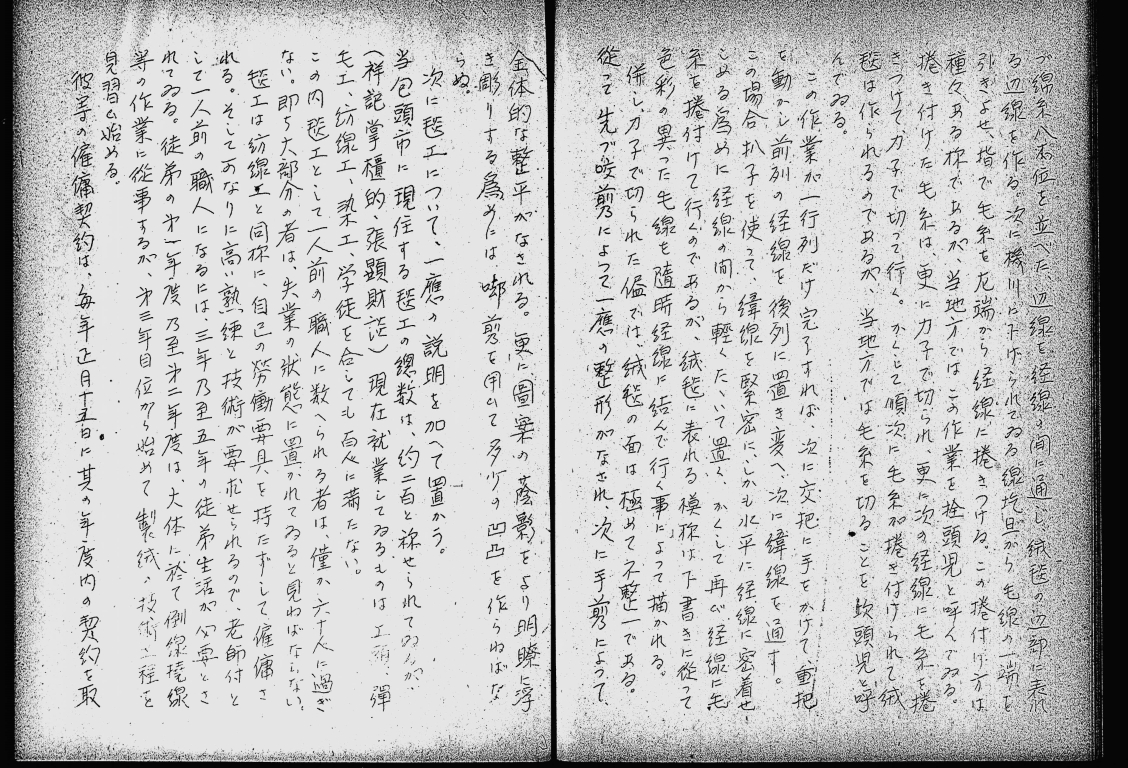 づ綿糸八本位を並べた辺線を経線の間に通し絨毯の辺部に表れ
る辺線を作る。次に機川に下げられてゐる線圪旦から毛線の一端を
引きよせ、指で毛糸を左端から経線に捲きつける。この捲付け方は
種々ある様であるが、当地方ではこの作業を拴頭児と呼んでゐる。
捲き付けた毛糸は、更に刀子で切られ、更に次の経線に毛糸を捲
きつけて刀子で切って行く。かくして順次に毛糸が捲き付けられて絨
毯は作られるのであるが、当地方では毛糸を切ることを砍頭児と呼
んでゐる。
この作業が一行列だけ完了すれば、次に交把に手をかけて、重把
を動かし前列の経線を後列に置き変へ、次に緯線を通す。
この場合扒子を使って、緯線を緊密に、しかも水平に経線に密着せ
しめる為めに経線の間から軽くたゝいて置く、かくして再び経線に毛
糸を捲付けて行くのであるが、絨毯に表れる模様は下書きに従って
色彩の異った毛線を随時経線に結んで行く事によって描かれる。
併し、刀子で切られた儘では、絨毯の面は極めて不整一である。
従って先づ咬剪によって一應の整形がなされ、次に手剪によって、
全体的な整平がなされる。更に圖案の蔭影をより明瞭に浮
き彫りする為めには啣剪を用ひて多少の凹凸を作らねばな
らぬ。
次に毯工について、一應の説明を加へて置かう。
当包頭市に現住する毯工の總数は、約二百と称せられてゐるが、
（祥記掌櫃的、張顕財談）現在就業してゐるものは工頭、彈
毛工、紡線工、染工、学徒を合しても百人に満たない。
この内毯工として一人前の職人に数へられる者は、僅か六十人に過ぎ
ない。即ち大部分の者は、失業の状態に置かれてゐると見ねばならない。
毯工は紡線工と同様に、自己の労働要具を持たずして雇傭さ
れる。そして可なりに高い熟練と技術が要求せられるので、老師付と
して一人前の職人になるには、三年乃至五年の徒弟生活が必要とさ
れてゐる。徒弟の㐧一年度乃至㐧二年度は、大体に於て倒線撓線
等の作業に從事するが、㐧三年目位から始めて製絨の技術工程を
見習ひ始める。
彼等の雇傭契約は、毎年正月十五日に其の年度内の契約を取